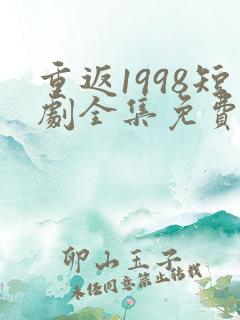 重返1998短
劇全集免費
卯山玉子
未任同意禁止转载